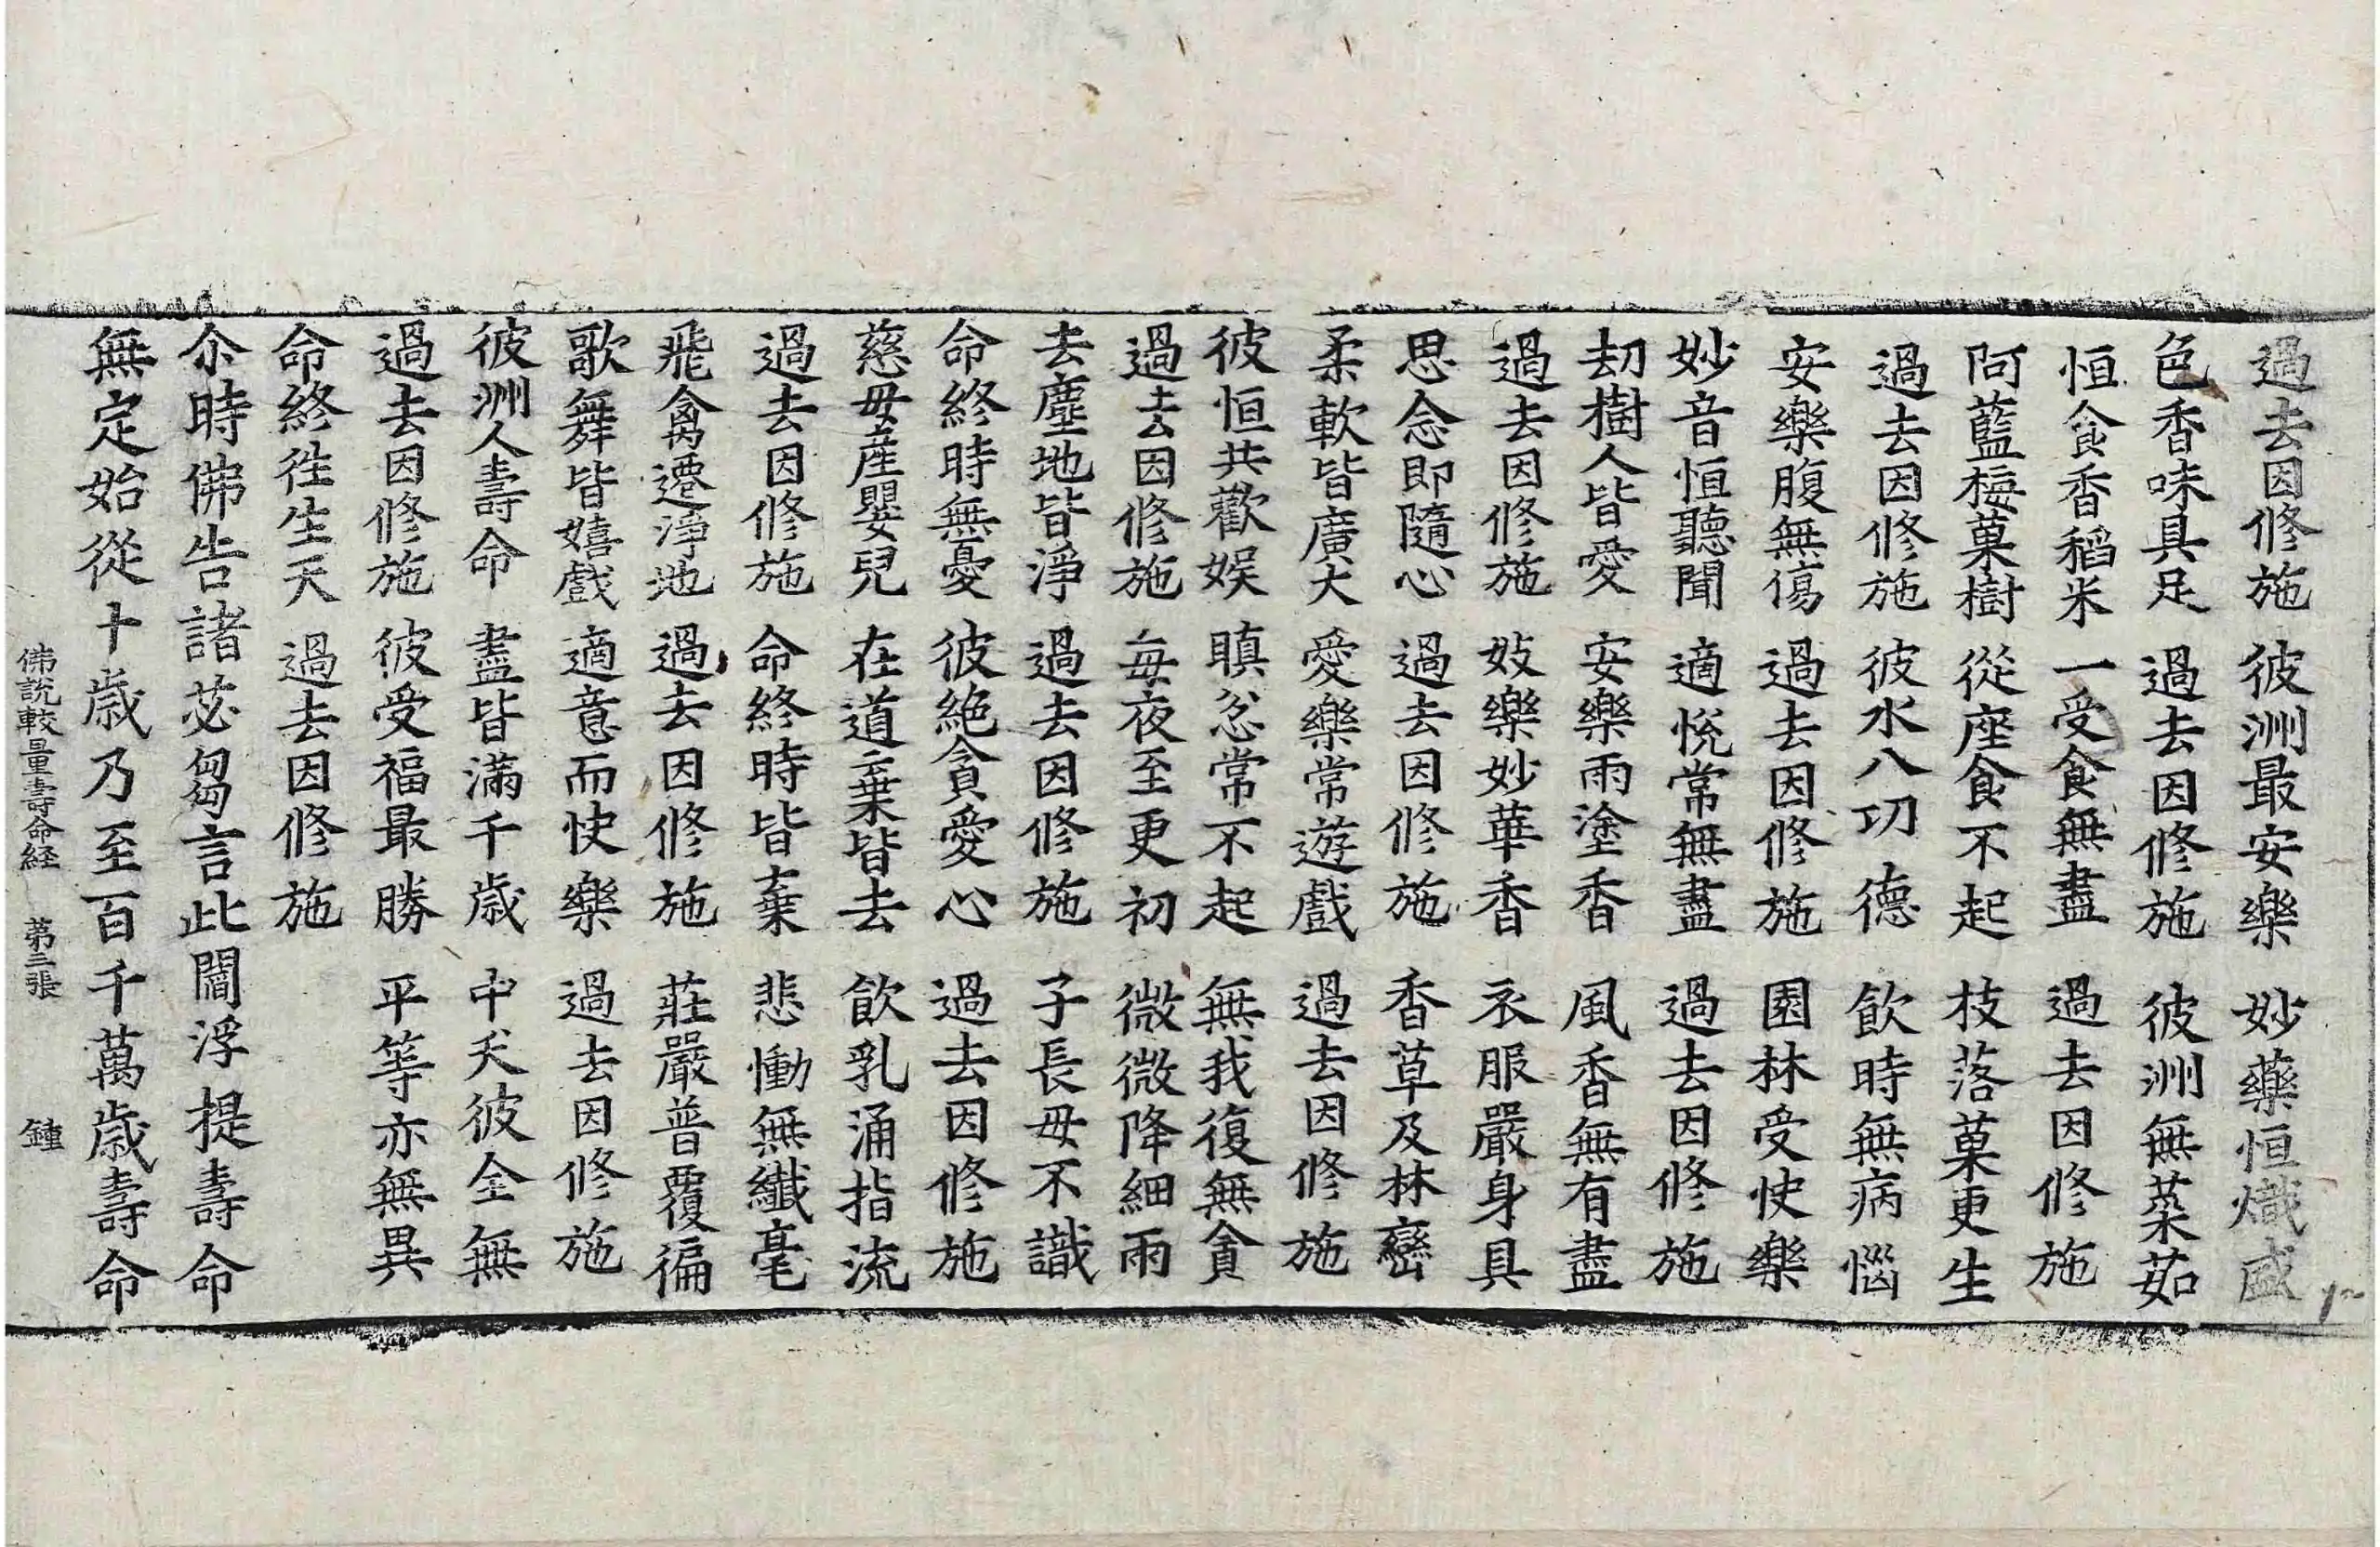 過去因修施 彼洲最安樂 妙藥恒熾盛
色香味具足 過去因修施 彼洲無菜茹
恒食香稻米 一受食無盡 過去因修施
阿藍梅菓樹 從座食不起 枝落菓更生
過去因修施 彼水八功德 飲時無病惱
安樂腹無傷 過去因修施 園林受快樂
妙音恒聽聞 適悅常無盡 過去因修施
刧樹人皆愛 安樂雨塗香 風香無有盡
過去因修施 妓樂妙華香 衣服嚴身具
思念即隨心 過去因修施 香草及林巒
柔軟皆廣大 愛樂常遊戲 過去因修施
彼恒共歡娛 瞋忿常不起 無我復無貪
過去因修施 每夜至更初 微微降細雨
去塵地皆淨 過去因修施 子長母不識
命終時無憂 彼絶貪愛心 過去因修施
慈母產嬰兒 在道棄皆去 飲乳涌指流
過去因修施 命終時皆棄 悲慟無纖毫
飛禽遷淨地 過去因修施 莊嚴普覆徧
歌舞皆嬉戲 適意而快樂 過去因修施
彼洲人壽命 盡皆滿千歲 中夭彼全無
過去因修施 彼受福最勝 平等亦無異
命終徃生天 過去因修施
尒時佛告諸苾芻言此閻浮提壽命
無定始從十歲乃至百千萬歲壽命
佛說較量壽命経 苐三張 鍾